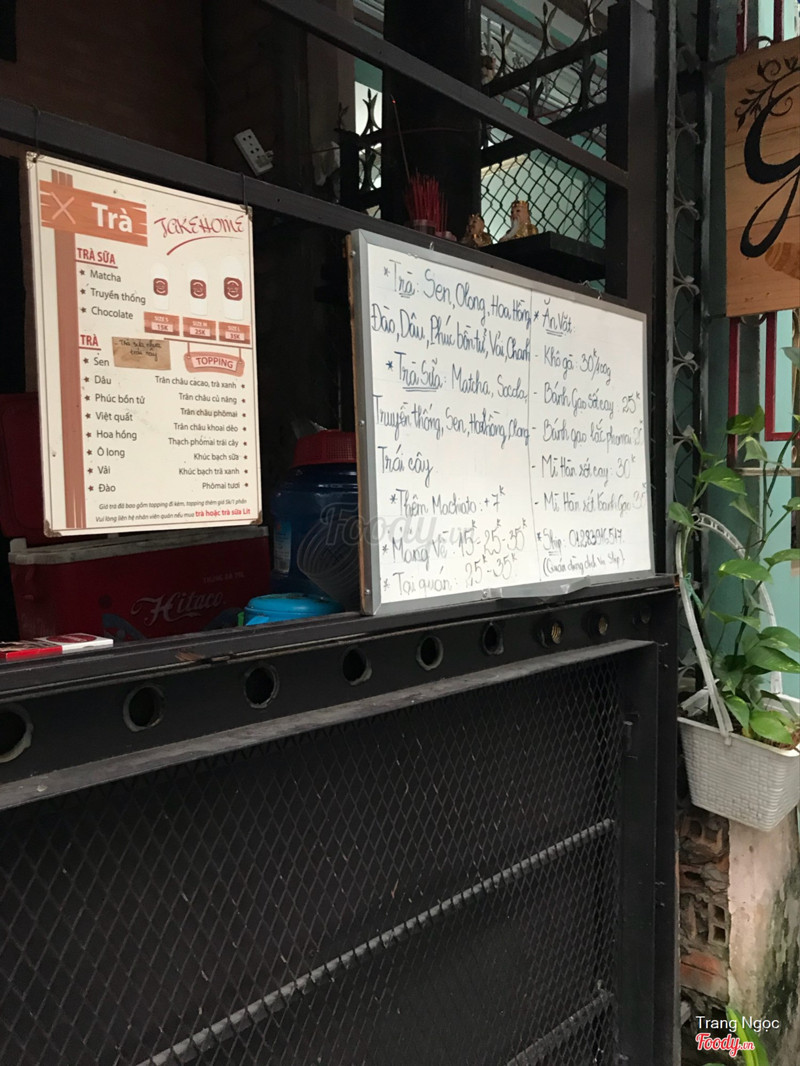 Trà
TAKEHOME
TRÀ SỮA
Matcha
Truyền thống
Chocolate
SIZE S 15K
SIZE M 25K
SIZE L 35K
TRÀ
Sen
Dâu
Phúc bồn tử
Việt quất
Hoa hồng
Ô long
Vải
Đào
TOPPING
Trân châu cacao, trà xanh
Trân châu củ năng
Trân châu phômai
Trân châu khoai dẻo
Thạch phômai trái cây
Khúc bạch sữa
Khúc bạch trà xanh
Phômai tươi
Giá trà đã bao gồm topping đi kèm, topping thêm giá 5k/1 phần
Vui lòng liên hệ nhân viên quán nếu mua trà hoặc trà sữa Lít
* Trà: Sen, Olong, Hoa Hồng
Đào, Dâu, Phúc bồn tử, Vải, Chanh
* Trà Sữa: Matcha, Socola,
Truyền thống, Sen, Hoa hồng, Olong
Trái cây
* Thêm Machiato: +7k
* Mang Về: 15k - 25k - 35k
* Tại quán: 25k - 35k
* Ăn Vặt
- Khô gà: 30k/100g
- Bánh Gạo sốt cay: 25k
- Bánh gạo lắc phomai
- Mì Hàn sốt cay: 30k
- Mì Hàn sốt bánh Gạo
* Ship:
Foody.vn
Trang Ngọc
Foody.vn